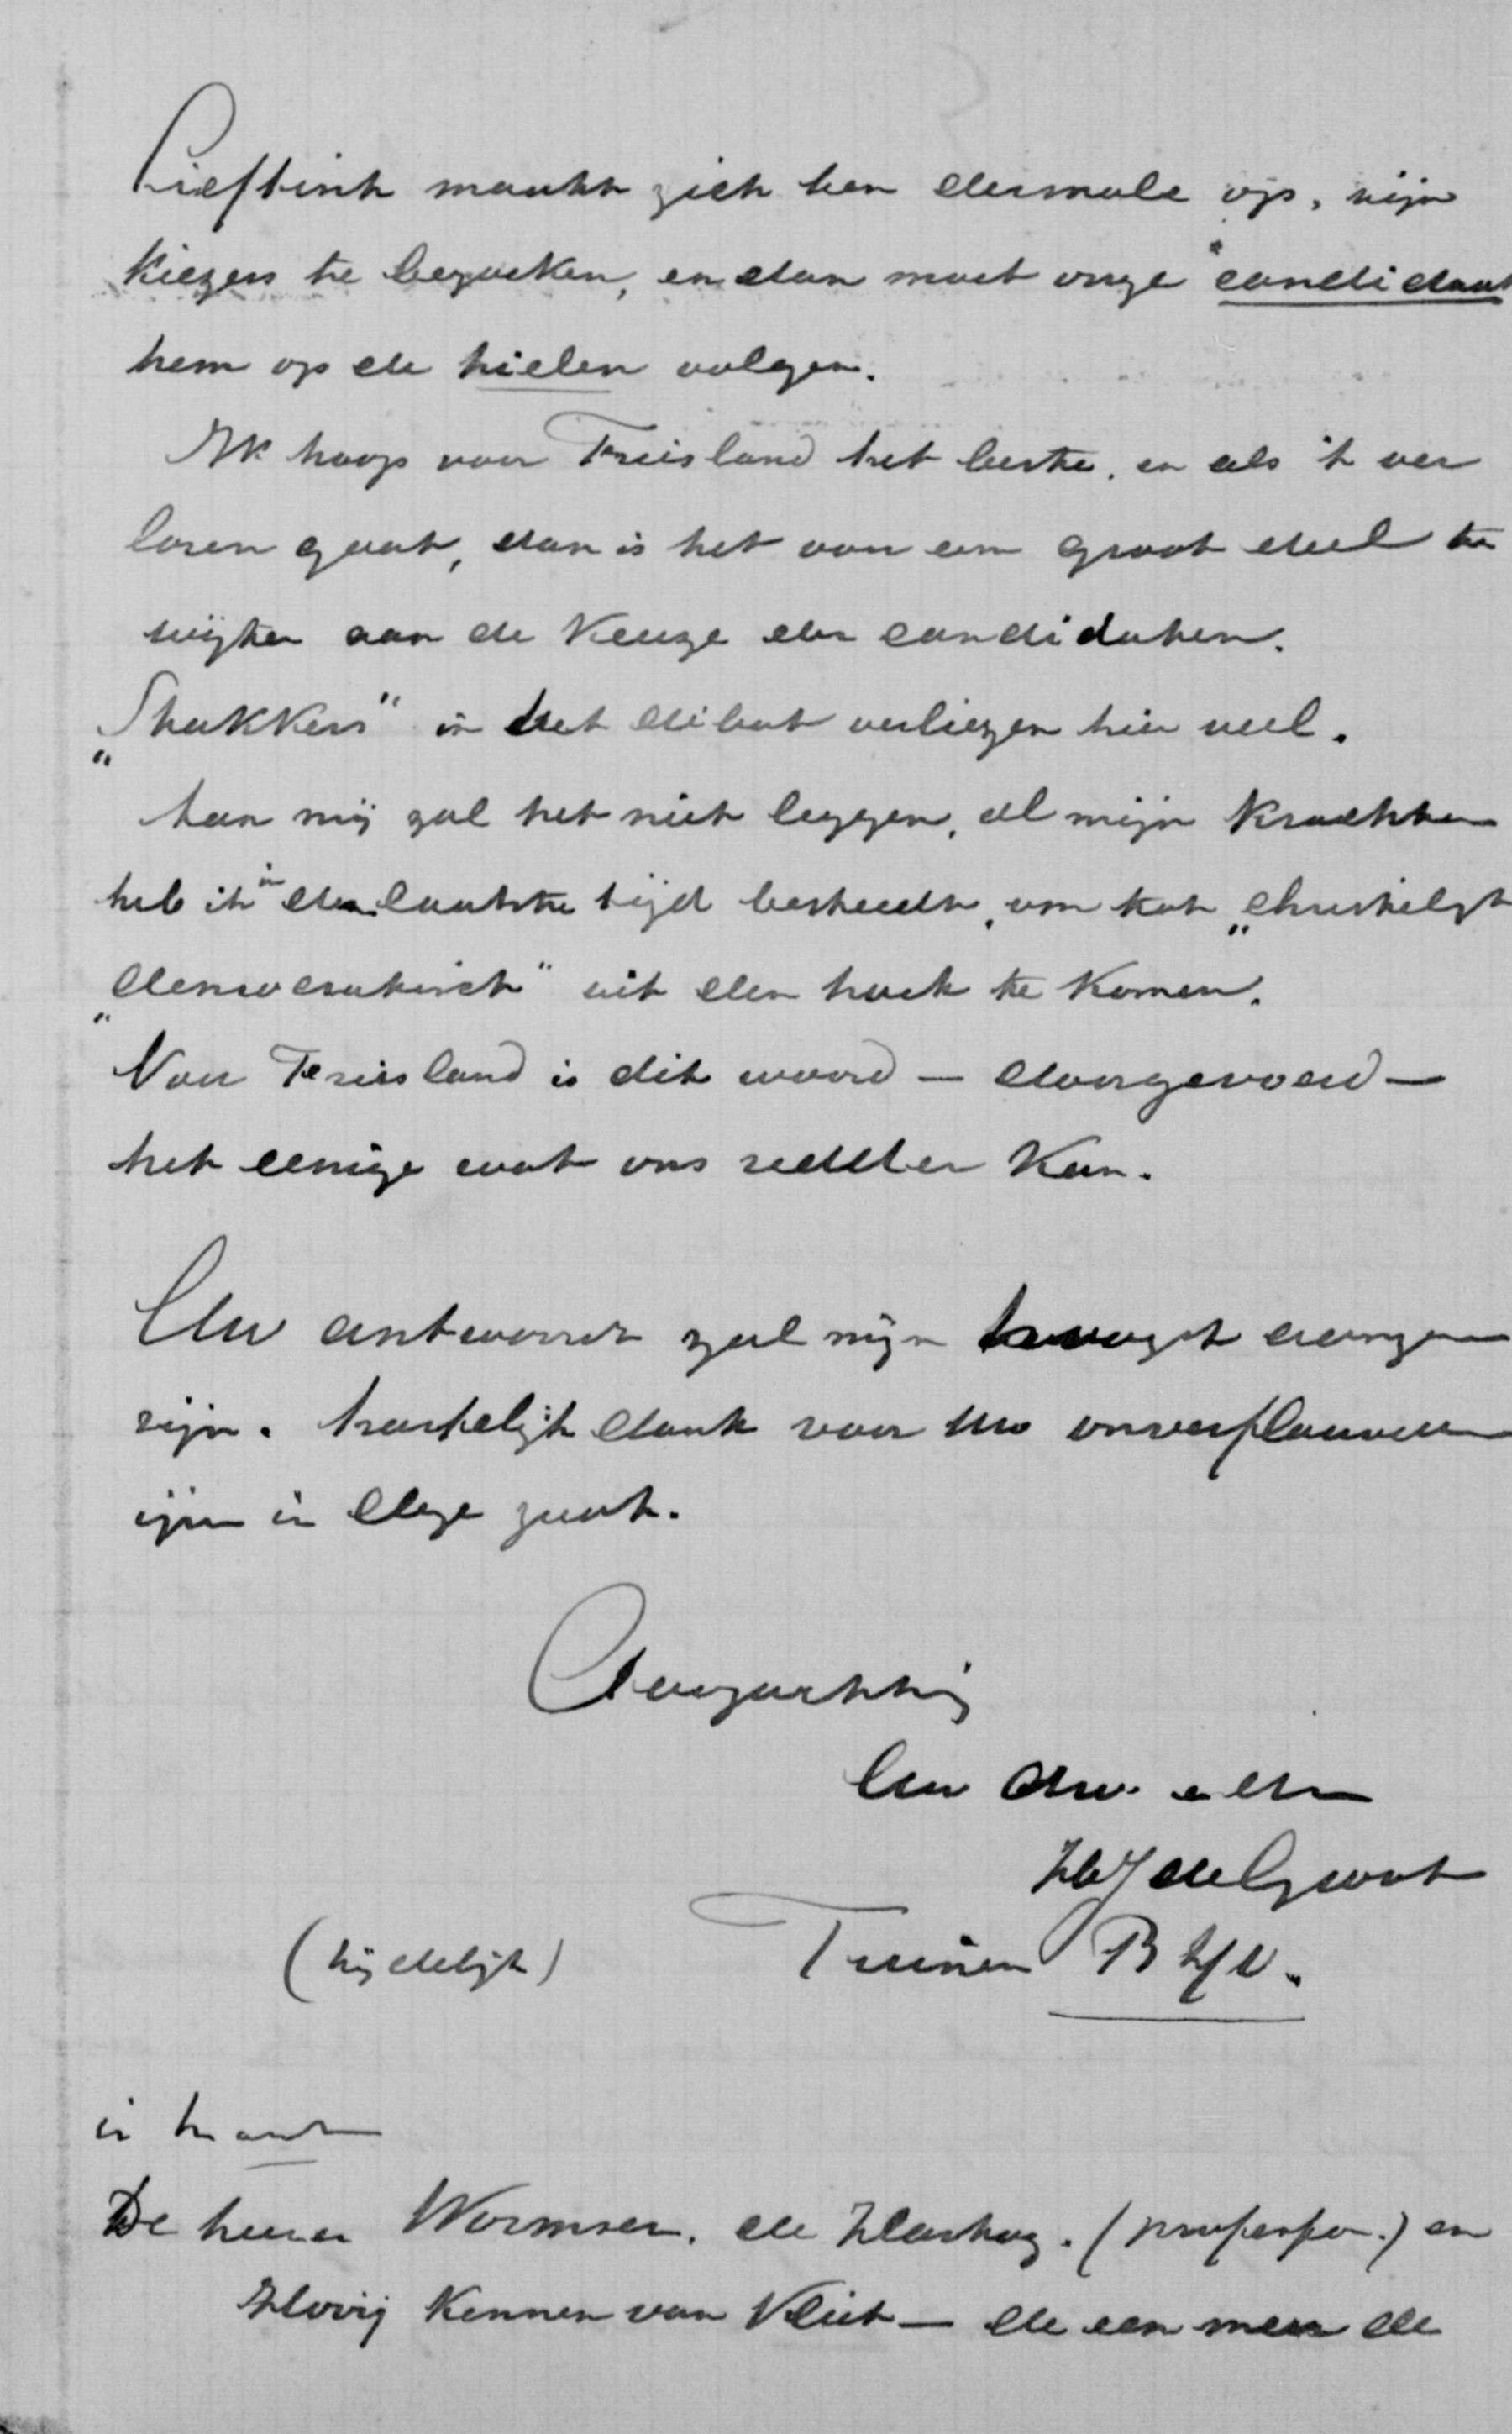 Lieftink maakt zich ten dermale op, zijn
kiezers te bezoeken, en dan moet onze candidaat
hem op de hielen volgen.
Ik hoop voor Friesland het beste, en als 't ver
loren gaat, dan is het voor een groot deel te
wijten aan de keuze der candidaten.
„Stakkers" in het debat verliezen hier veel.
Aan mij zal het niet leggen, al mijn krachten
heb ik in den laatste tijd besteedt, om tot „christelijk
„democratisch" uit den hoek te komen.
Voor Friesland is dit woord — doorgevoerd —
het eenige wat ons redden kan.
Uw antwoord zal mijn hoogst aangen
zijn. Hartelijk dank voor Uw onverflauwden
ijver in deze zaak.
Hoogachtend
Uw dw. en
de Groot
(tijdelijk) Tzum
in haast
De heeren Wormser, de Hartog. (professor.) en
Hovij kennen van Vliet — de een meer de